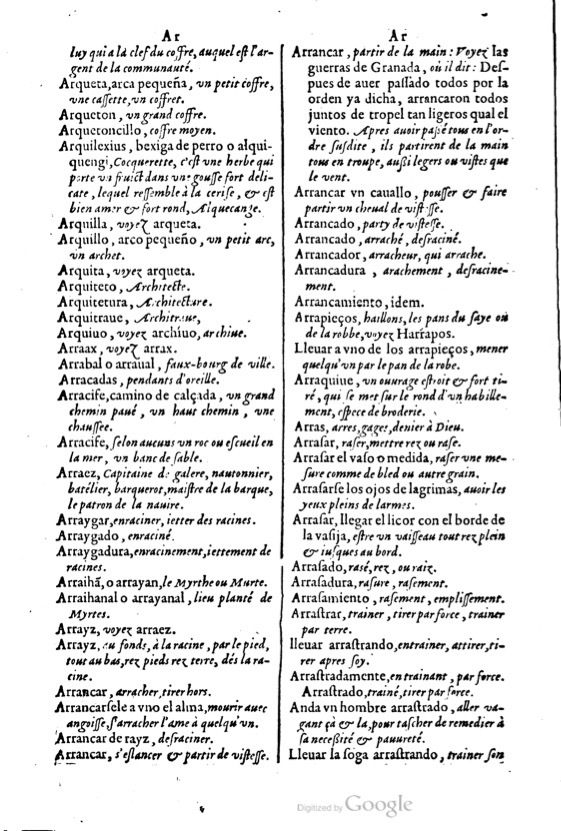 Ar
luy qui a là clef du coffre, auquel est l'ar-
gent de la communauté.
Arqueta, arca pequeña, vn petit coffre,
vne cassette, vn coffret.
Arqueton, vn grand coffre.
Arquetoncillo, coffre moyen.
Arquilexius, bexiga de perro o alqui-
quengi, Cocquerette, c'est vne herbe qui
porte vn fruict dans vne gousse fort deli-
cate, lequel ressemble à la cerise, & est
bien amer & fort rond, Alquecange.
Arquilla, voyez arqueta.
Arquillo, arco pequeño, vn petit arc,
vn archet.
Arquita, voyez arqueta.
Arquiteto, Architecte.
Arquitetura, Architecture.
Arquitraue, Architraue,
Arquiuo, voyez archiuo, archiue.
Arraax, voyez arrax.
Arrabal o arraual, faux-bourg de ville.
Arracadas, pendants d'oreille.
Arracife, camino de calçada, vn grand
chemin paué, vn haut chemin, vne
chaussee.
Arracife, selon aucuns vn roc ou escueil en
la mer, vn banc de sable.
Arraez, Capitaine de galere, nautonnier,
batélier, barquerot, maistre de la barque,
le patron de la nauire.
Arraygar, enraciner, ietter des racines.
Arraygado, enraciné.
Arraygadura, enracinement, iettement de
racines.
Arraihã, o arrayan, le Myrthe ou Murte.
Arraihanal o arrayanal, lieu planté de
Myrtes.
Arrayz, voyez arraez.
Arrayz, au fonds, à la racine, par le pied,
tout au bas, rez pieds rez terre, dés la ra-
cine.
Arrancar, arracher, tirer hors.
Arrancarsele a vno el alma, mourir auec
angoisse, s'arracher l'ame à quelqu'vn.
Arrancar de rayz, desraciner.
Arrancar, s'eslancer & partir de vistesse.
Ar
Arrancar, partir de la main: Voyez las
guerras de Granada, où il dit: Des-
pues de auer passado todos por la
orden ya dicha, arrancaron todos
juntos de tropel tan ligeros qual el
viento. Apres auoir passé tous en l'or-
dre susdite, ils partirent de la main
tous en troupe, aussi legers ou vistes que
le vent.
Arrancar vn cauallo, pousser & faire
partir vn cheual de vistesse.
Arrancado, party de vistesse.
Arrancado, arraché, desraciné.
Arrancador, arracheur, qui arrache.
Arrancadura, arachement, desracine-
ment.
Arrancamiento, idem.
Arrapieços, haillons, les pans du saye ou
de la robbe, voyez Harrapos.
Lleuar a vno de los arrapieços, mener
quelqu'vn par le pan de la robe.
Arraquiue, vn ouurage estroit & fort ti-
ré, qui se met sur le rond d'vn habille-
ment, espece de broderie.
Arras, arres, gages, denier à Dieu.
Arrasar, raser, mettre rez ou rase.
Arrasar el vaso o medida, raser vne me-
sure comme de bled ou autre grain.
Arrasarse los ojos de lagrimas, auoir les
yeux pleins de larmes.
Arrasar, llegar el licor con el borde de
la vasija, estre vn vaisseau tout rez plein
& iusques au bord.
Arrasado, rasé, rez, ou raiz.
Arrasadura, rasure, rasement.
Arrasamiento, rasement, emplissement.
Arrastrar, trainer, tirer par force, trainer
par terre.
lleuar arrastrando, entrainer, attirer, ti-
rer apres soy.
Arrastradamente, en trainant, par force.
Arrastrado, trainé, tirer par force.
Anda vn hombre arrastrado, aller va-
gant çà & la, pour tascher de remedier à
sa necessité & pauureté.
Lleuar la soga arrastrando, trainer son
Digitized by Google